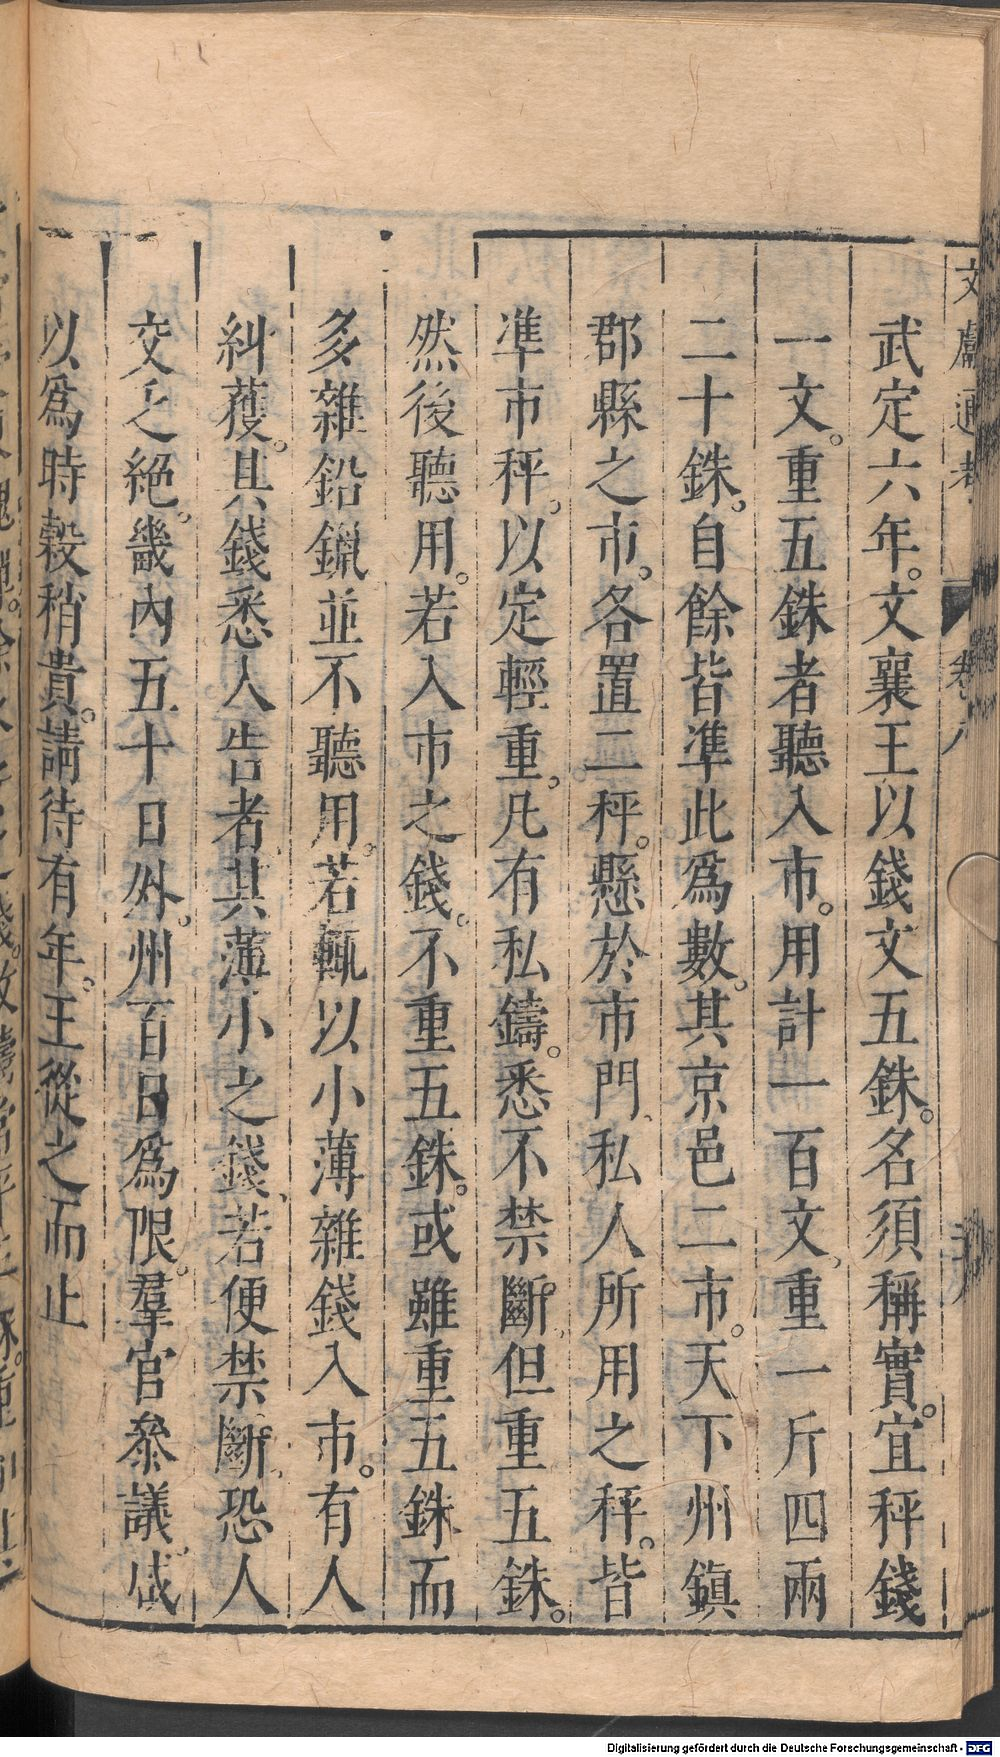 文獻通考 卷八
武定六年。文襄王以錢文五銖。名須稱實。宜秤錢
一文。重五銖者聽入市。用計一百文、重一斤四兩
二十銖。自餘皆準此爲數。其京邑二市。天下州鎮
郡縣之市。各置二秤。懸於市門、私人所用之秤。皆
準市秤。以定輕重。凡有私鑄。悉不禁斷、但重五銖。
然後聽用。若入市之錢。不重五銖。或雖重五銖而
多雜鉛鑞並不聽用。若輒以小薄雜錢入市。有人
糾獲。其錢悉人告者、其薄小之錢、若便禁斷、恐人
交乏絕。畿內五十日外。州百日爲限。羣官參議、咸
以爲時穀稍貴。請待有年。王從之而止
Digitalisierung gefördert durch die Deutsche Forschungsgemeinschaft - DFG